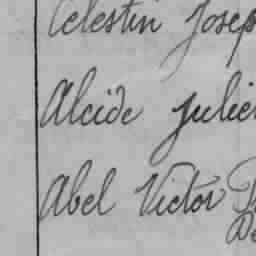 Célestin Joseph
Alcide Julien
Abel Victor